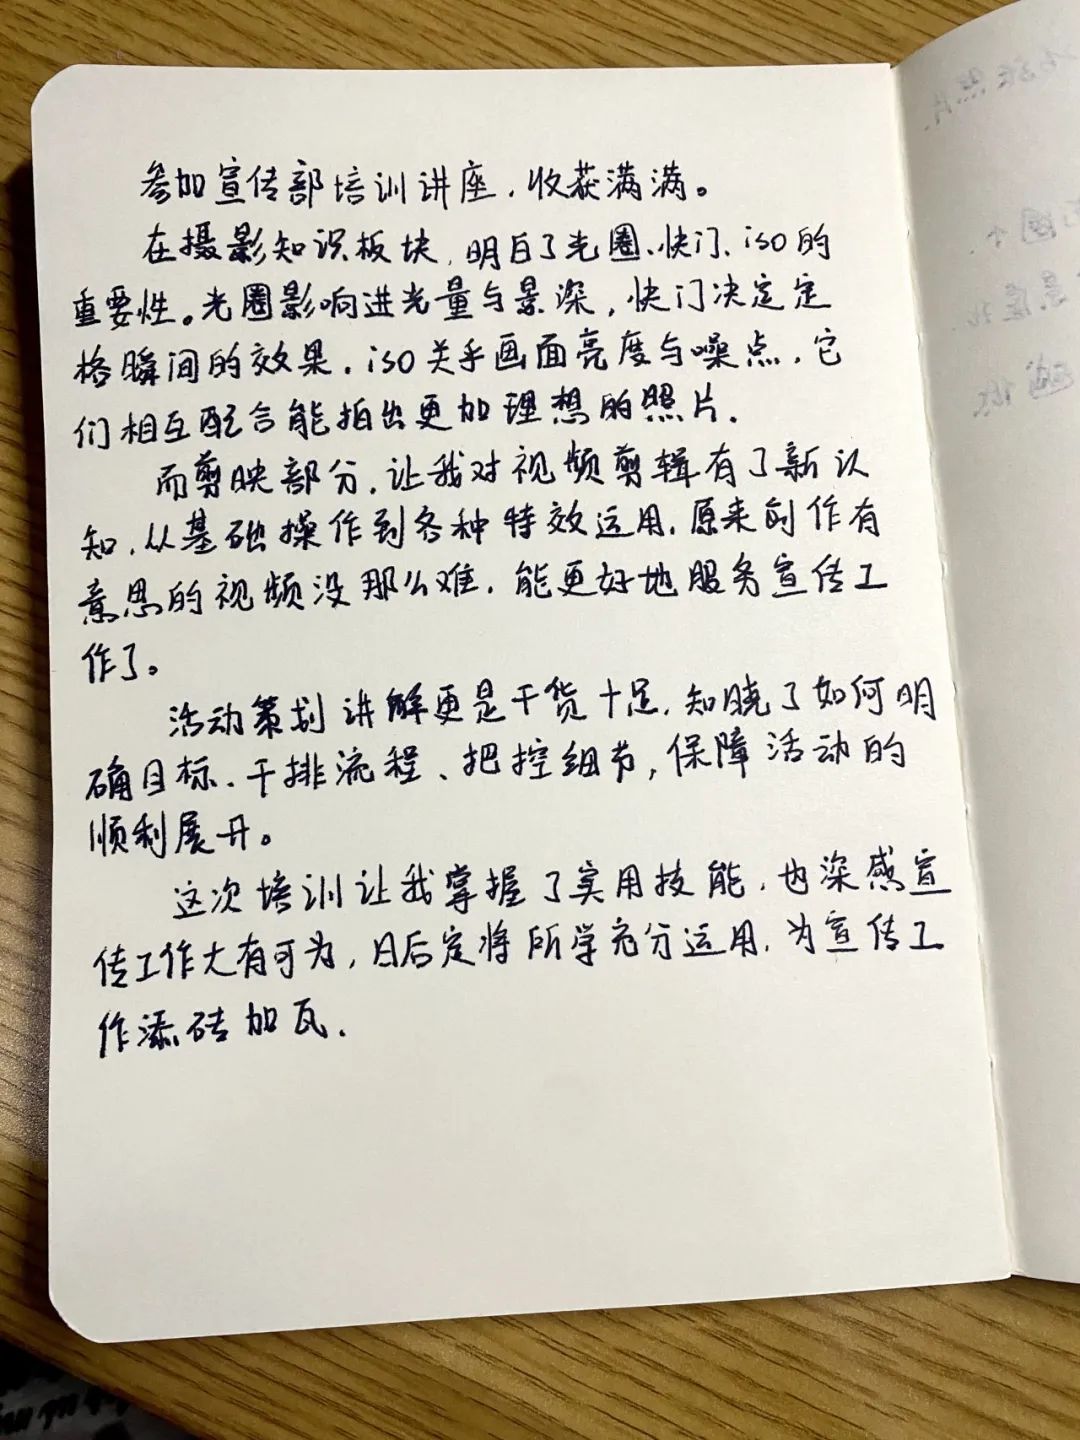 参加宣传部培训讲座，收获满满。
在摄影知识板块，明白了光圈、快门、iso的
重要性。光圈影响进光量与景深，快门决定定
格瞬间的效果，iso关乎画面亮度与噪点，它
们相互配合能拍出更加理想的照片.
而剪映部分，让我对视频剪辑有了新认
知，从基础操作到各种特效运用，原来创作有
意思的视频没那么难，能更好地服务宣传工
作了。
活动策划讲解更是干货十足，知晓了如何明
确目标、干排流程、把控细节，保障活动的
顺利展开。
这次培训让我掌握了实用技能，也深感宣
传工作大有可为，日后定将所学充分运用，为宣传工
作添砖加瓦.